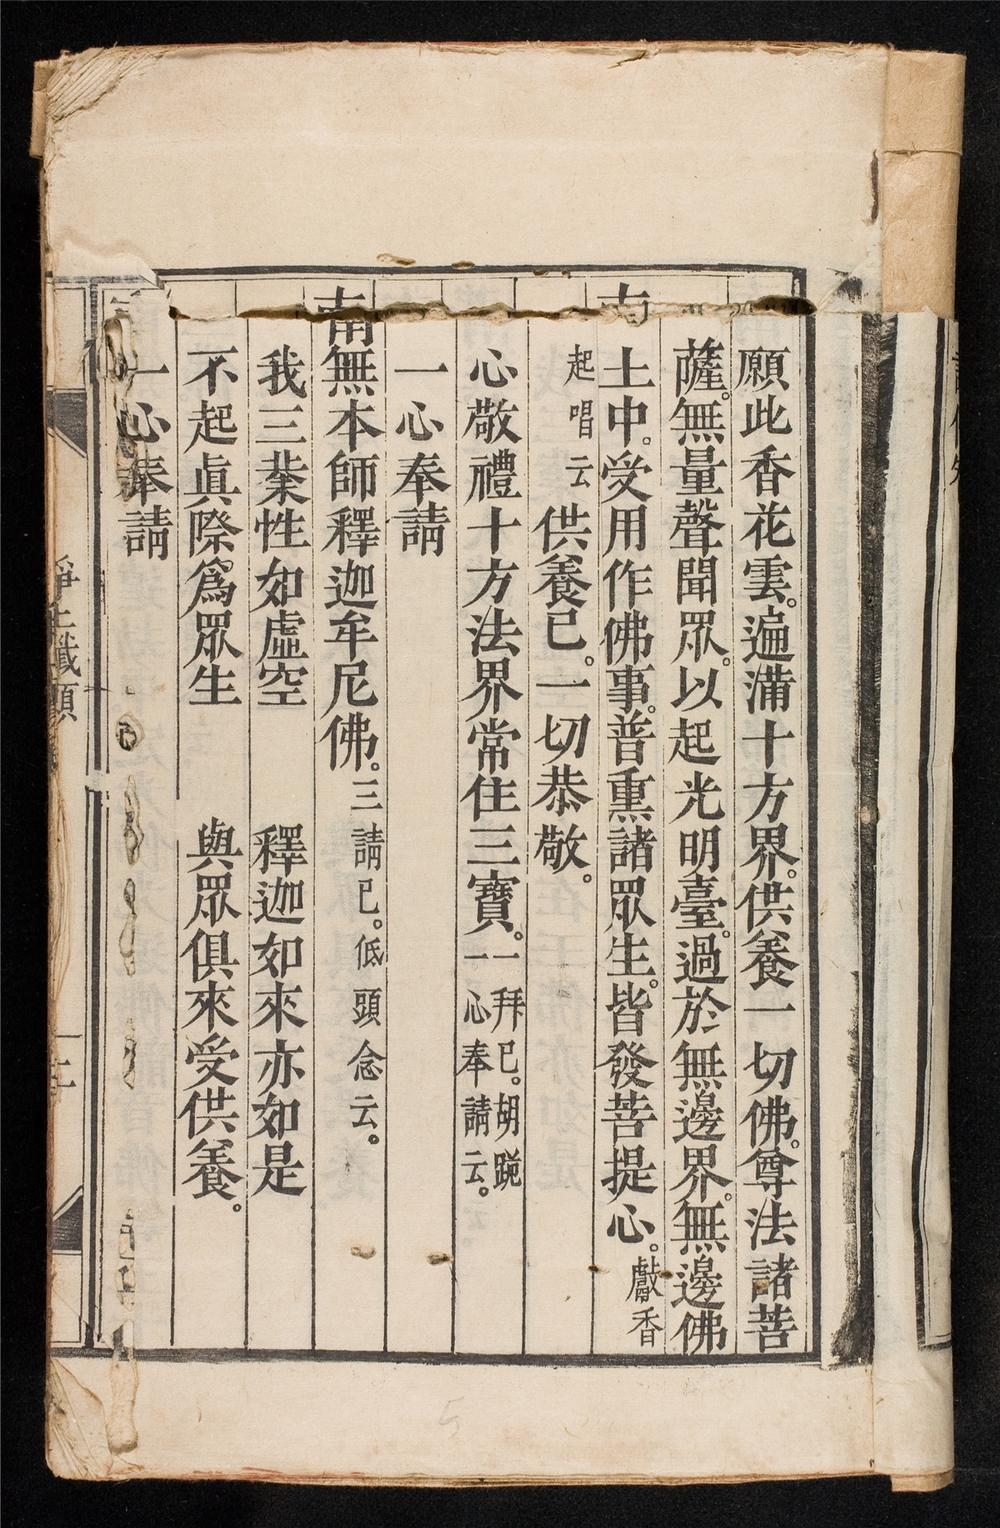 願此香花雲。遍滿十方界。供養一切佛。尊法諸菩
薩。無量聲聞眾。以起光明臺。過於無邊界。無邊佛
土中。受用作佛事。普熏諸眾生。皆發菩提心。獻香
起唱云供養已。一切恭敬。
心敬禮十方法界常住三寶。一拜已。胡跪一心奉請云。
一心奉請
南無本師釋迦牟尼佛。三請已。低頭念云。
我三業性如虛空 釋迦如來亦如是
不起眞際爲眾生 與眾俱來受供養。
一心奉請
淨土懺願